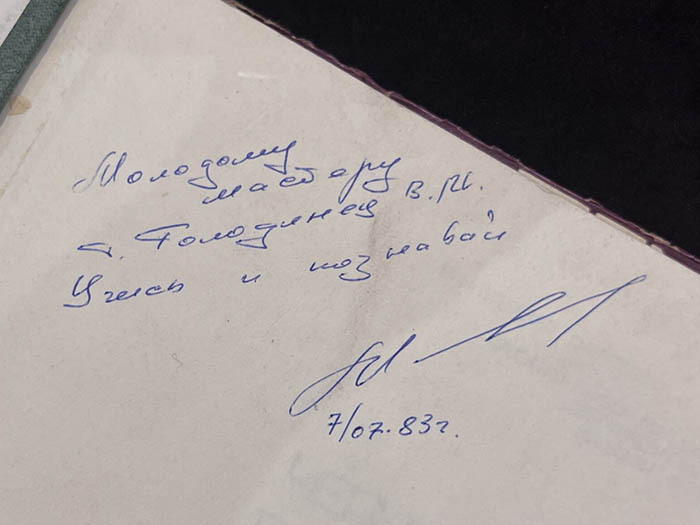 Молодому
мастеру
т. Голодянец В.М.
Учись и познавай
7/07.83г.